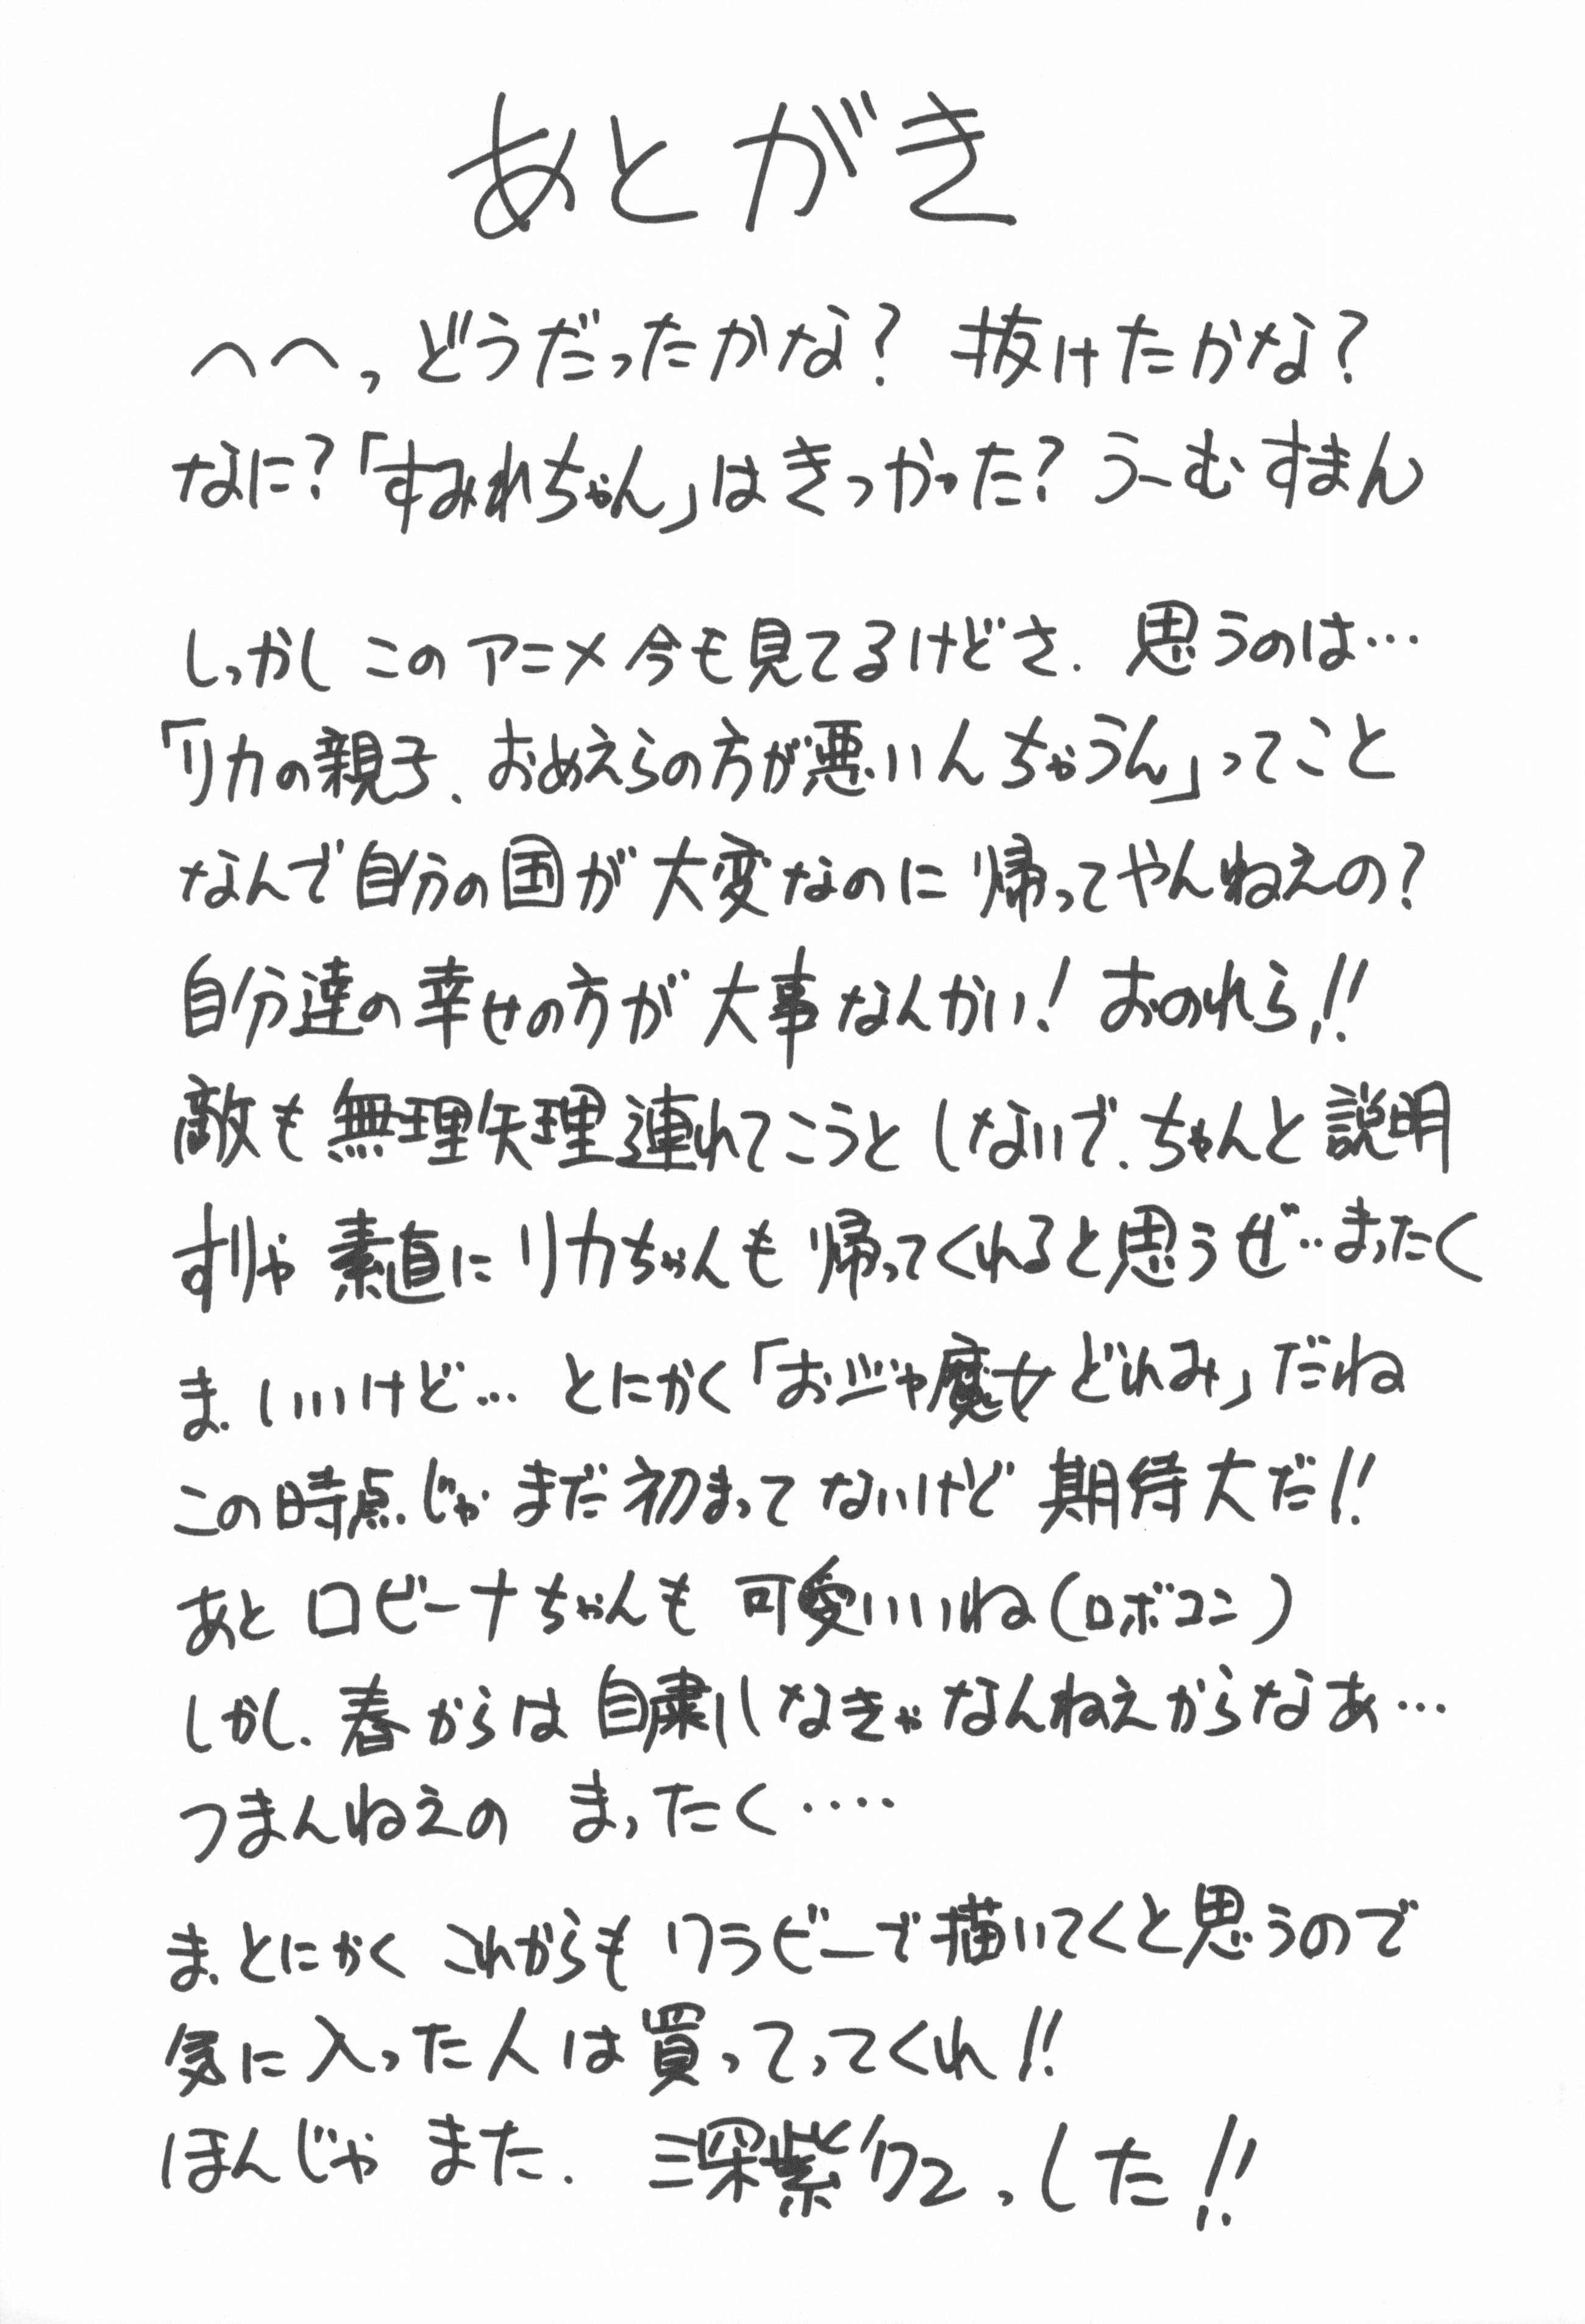 あとがき
へへ、どうだったかな? 抜けたかな?
なに?「すみれちゃん」はきつかった? うーむ すまん
しっかし このアニメ 今も見てるけどさ. 思うのは…
「リカの親子、おめえらの方が悪いんちゃうん」ってこと
なんで自分の国が大変なのに 帰ってやんねえの?
自分達の幸せの方が大事なんかい! おのれら!!
敵も無理矢理連れてこうとしないで、ちゃんと説明
すりゃ 素直にリカちゃんも帰ってくれると思うぜ‥まったく
ま、いいけど… とにかく「おジャ魔女どれみ」だね
この時点じゃ まだ初まってないけど 期待大だ!!
あと ロビーナちゃんも 可愛いいね(ロボコン)
しかし、春からは 自粛しなきゃなんねえからなあ…
つまんねえの まったく‥‥
ま、とにかく これからも ワラビーで描いてくと思うので
気に入った人は買ってってくれ!!
ほんじゃ また. 深紫 した!!